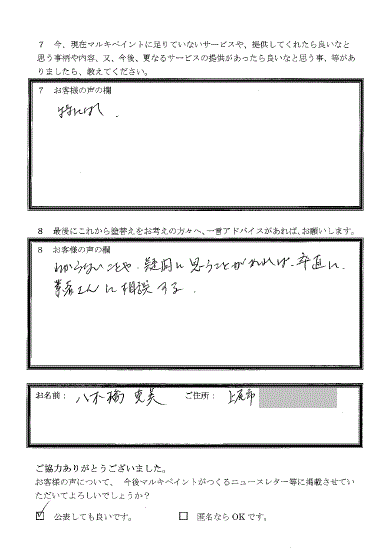 ７ 今、現在マルキペイントに足りていないサービスや、提供してくれたら良いなと
思う事柄や内容、又、今後、更なるサービスの提供があったら良いなと思う事、等があ
りましたら、教えてください。
７ お客様の声の欄
特になし．
８ 最後にこれから塗替えをお考えの方々へ、一言アドバイスがあれば、お願いします。
８ お客様の声の欄
わからないことや、疑問に思うことがあれば、卒直に、
業者さんに相談する．
お名前： 八木橋 恵美 ご住所： 上尾市
ご協力ありがとうございました。
お客様の声について、 今後マルキペイントがつくるニュースレター等に掲載させてい
ただいてよろしいでしょうか？
☑ 公表しても良いです。 □ 匿名ならＯＫです。